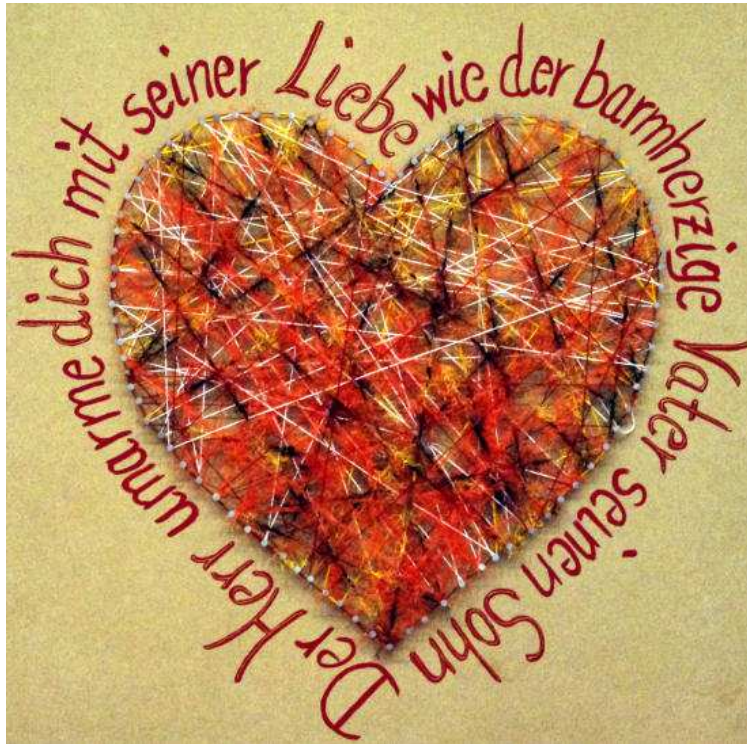 Der Herr umarme dich mit seiner Liebe wie der barmherzige Vater seinen Sohn